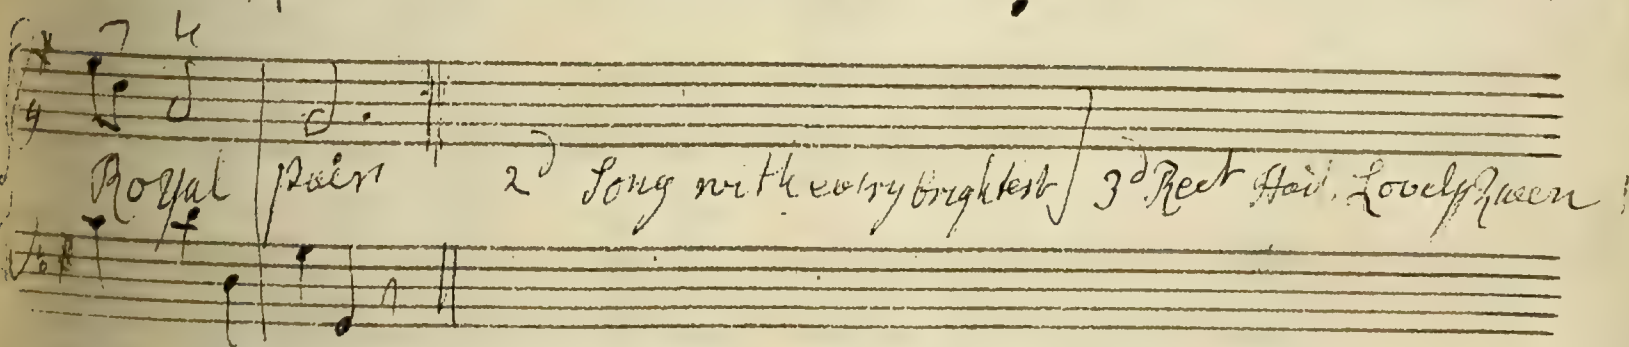 Royal pair 2d Song with every brightest 3d Rect Hail Lovely Queen